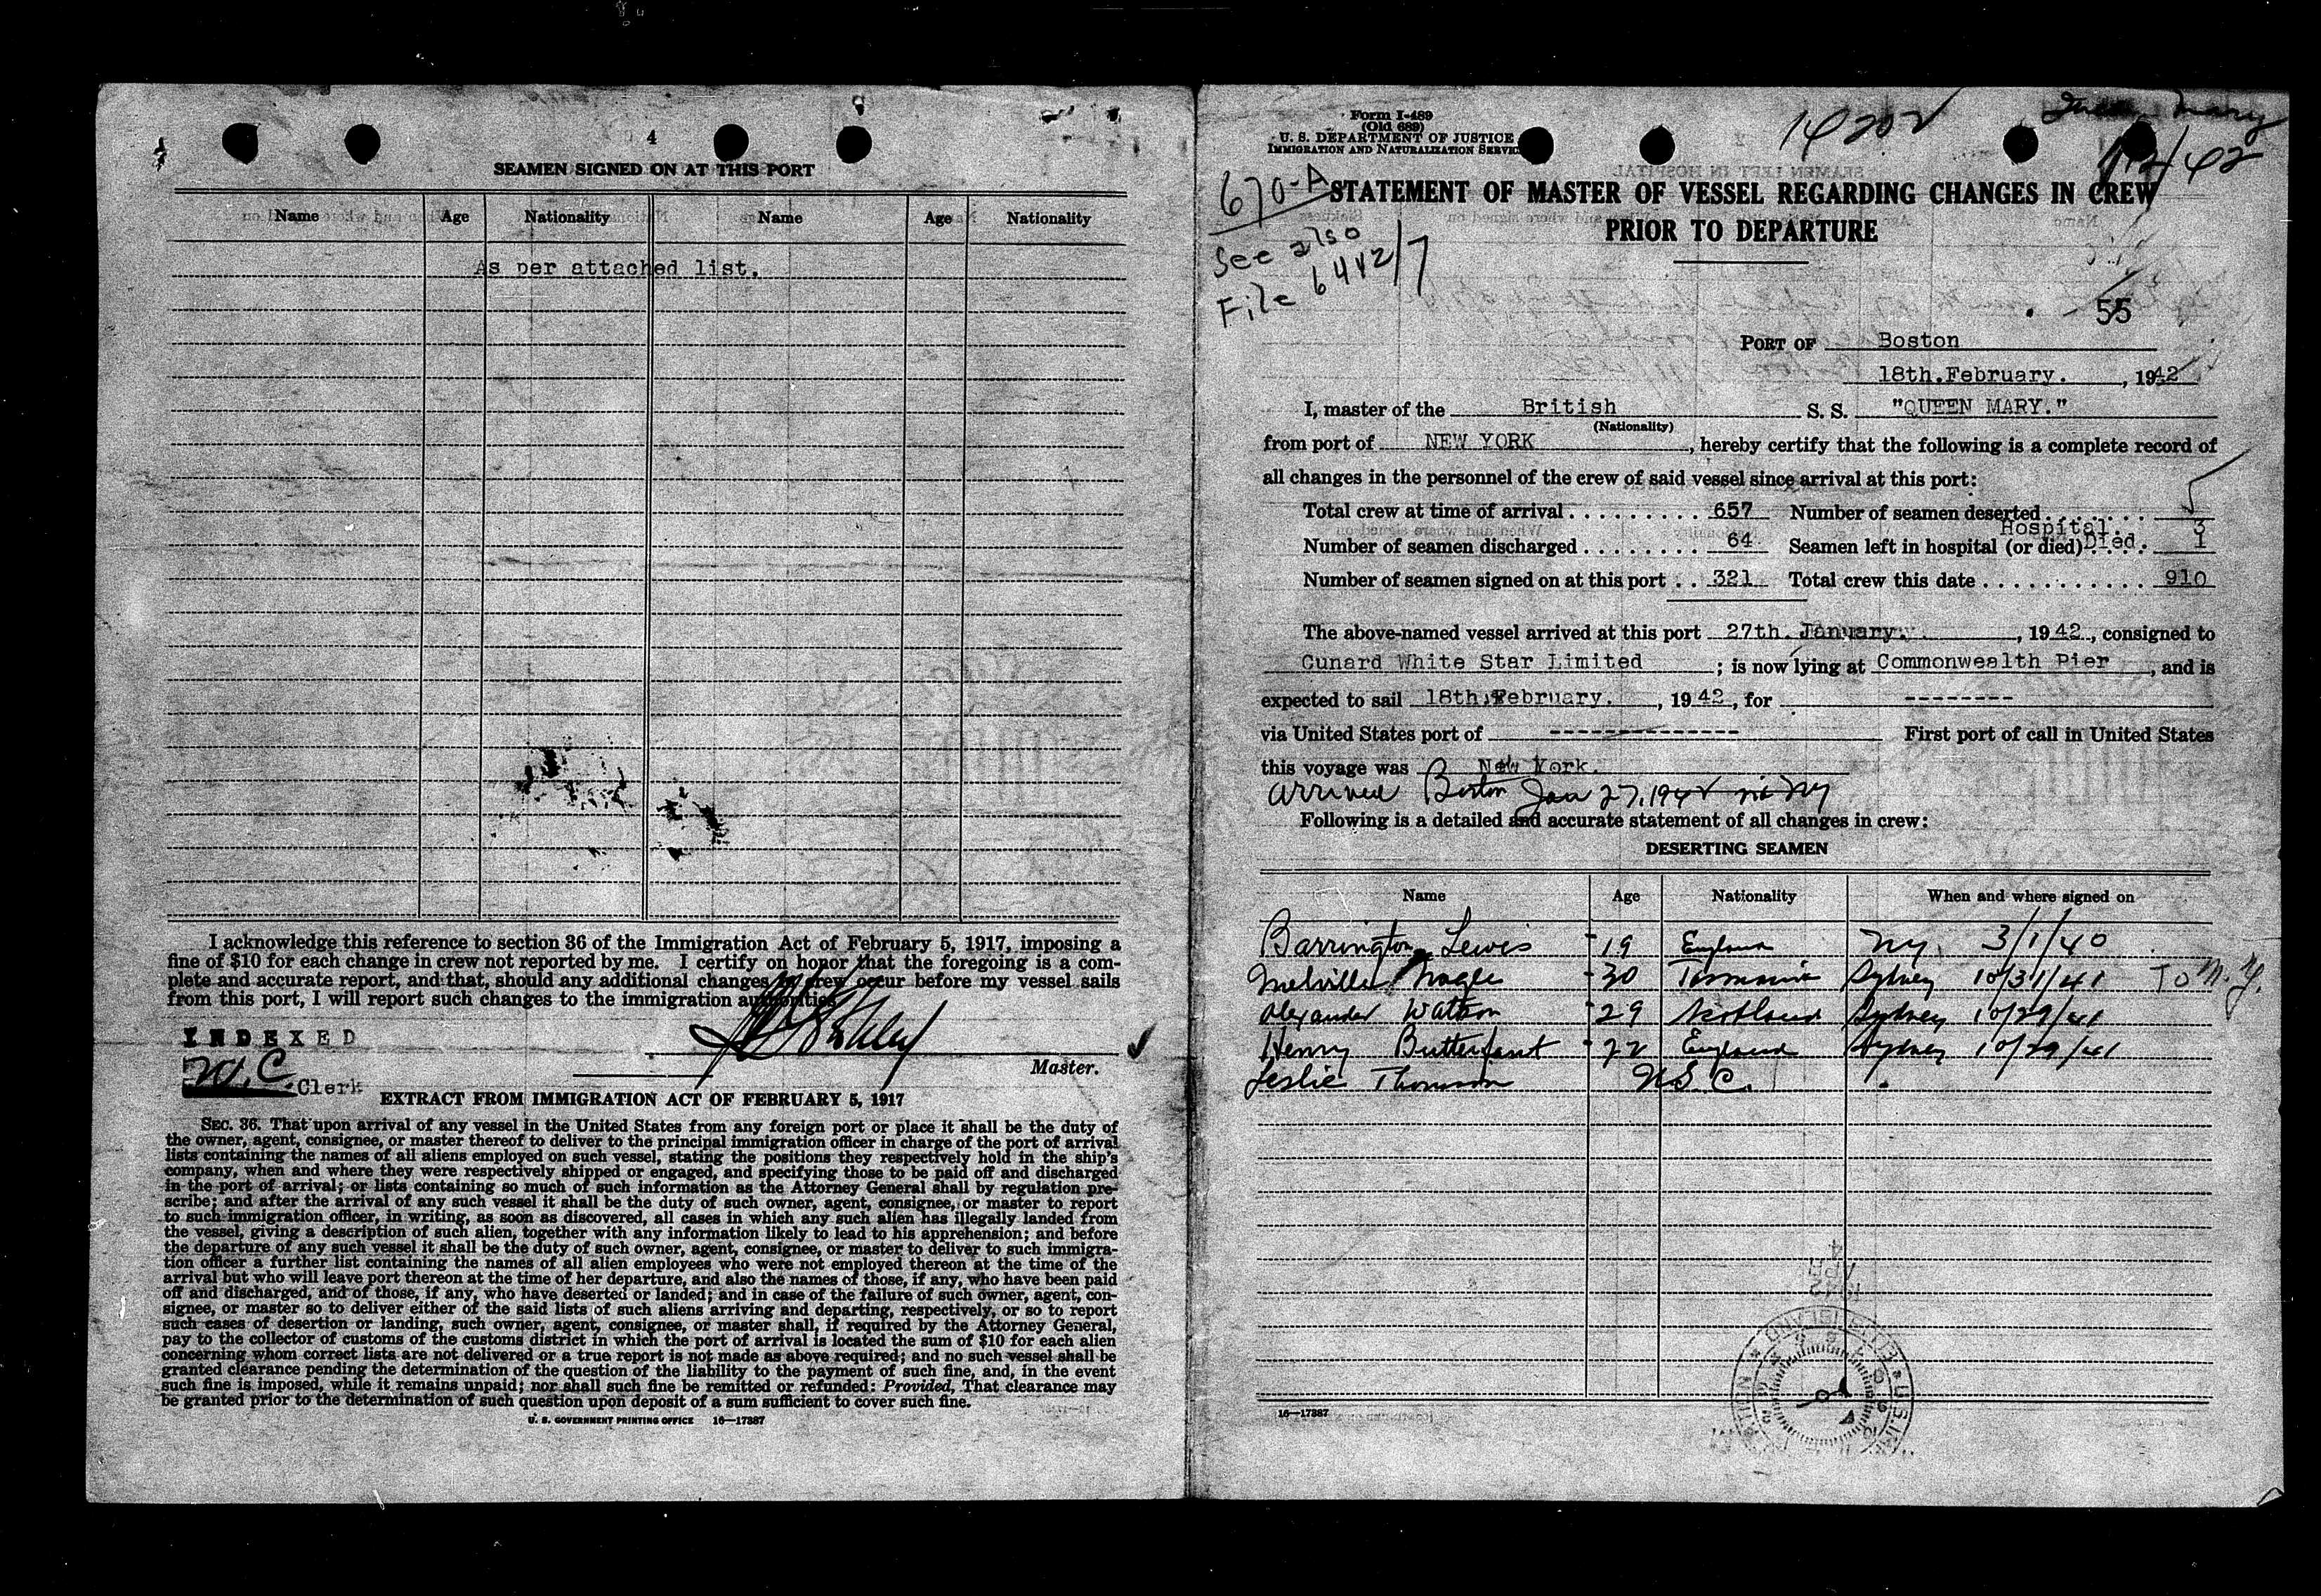 4
SEAMEN SIGNED ON AT THIS PORT
Name Age Nationality Name Age Nationality
As per attached list.
I acknowledge this reference to section 36 of the Immigration Act of February 5, 1917, imposing a
fine of $10 for each change in crew not reported by me. I certify on honor that the foregoing is a com-
plete and accurate report, and that, should any additional changes in crew occur before my vessel sails
from this port, I will report such changes to the immigration authorities.
INDEXED
W.C. Clerk
Master.
EXTRACT FROM IMMIGRATION ACT OF FEBRUARY 5, 1917
SEC. 36. That upon arrival of any vessel in the United States from any foreign port or place it shall be the duty of
the owner, agent, consignee, or master thereof to deliver to the principal immigration officer in charge of the port of arrival
lists containing the names of all aliens employed on such vessel, stating the positions they respectively hold in the ship's
company, when and where they were respectively shipped or engaged, and specifying those to be paid off and discharged
in the port of arrival; or lists containing so much of such information as the Attorney General shall by regulation pre-
scribe; and after the arrival of any such vessel it shall be the duty of such owner, agent, consignee, or master to report
to such immigration officer, in writing, as soon as discovered, all cases in which any such alien has illegally landed from
the vessel, giving a description of such alien, together with any information likely to lead to his apprehension; and before
the departure of any such vessel it shall be the duty of such owner, agent, consignee, or master to deliver to such immigra-
tion officer a further list containing the names of all alien employees who were not employed thereon at the time of the
arrival but who will leave port thereon at the time of her departure, and also the names of those, if any, who have been paid
off and discharged, and of those, if any, who have deserted or landed; and in case of the failure of such owner, agent, con-
signee, or master so to deliver either of the said lists of such aliens arriving and departing, respectively, or so to report
such cases of desertion or landing, such owner, agent, consignee, or master shall, if required by the Attorney General,
pay to the collector of customs of the customs district in which the port of arrival is located the sum of $10 for each alien
concerning whom correct lists are not delivered or a true report is not made as above required; and no such vessel shall be
granted clearance pending the determination of the question of the liability to the payment of such fine, and, in the event
such fine is imposed, while it remains unpaid; nor shall such fine be remitted or refunded: Provided, That clearance may
be granted prior to the determination of such question upon deposit of a sum sufficient to cover such fine.
U. S. GOVERNMENT PRINTING OFFICE 16—17387
Form I-489
(Old 689)
U. S. DEPARTMENT OF JUSTICE
IMMIGRATION AND NATURALIZATION SERVICE
14202
Queen Mary
670-A
STATEMENT OF MASTER OF VESSEL REGARDING CHANGES IN CREW
PRIOR TO DEPARTURE
See also
File 6442/7
55
PORT OF Boston
18th.February. , 1942
I, master of the British S. S. "QUEEN MARY."
(Nationality)
from port of NEW YORK , hereby certify that the following is a complete record of
all changes in the personnel of the crew of said vessel since arrival at this port:
Total crew at time of arrival 657 Number of seamen deserted 5
Hospital. 3
Number of seamen discharged 64 Seamen left in hospital (or died) Died. 1
Number of seamen signed on at this port 321 Total crew this date 910
The above-named vessel arrived at this port 27th. January. , 1942, consigned to
Cunard White Star Limited ; is now lying at Commonwealth Pier , and is
expected to sail 18th.February. , 1942, for --------
via United States port of -------------- First port of call in United States
this voyage was New York.
Arrived Boston Jan 27, 1942 via NY
Following is a detailed and accurate statement of all changes in crew:
DESERTING SEAMEN
Name Age Nationality When and where signed on
Barrington Lewis 19 England NY 3/1/40
Melville Nagle 30 Tasmania Sydney 10/31/41 To M.Y.
Alexander Watson 29 Scotland Sydney 10/29/41
Henry Butterfant 22 England Sydney 10/29/41
Leslie Thomson U.S.C.
16—17387